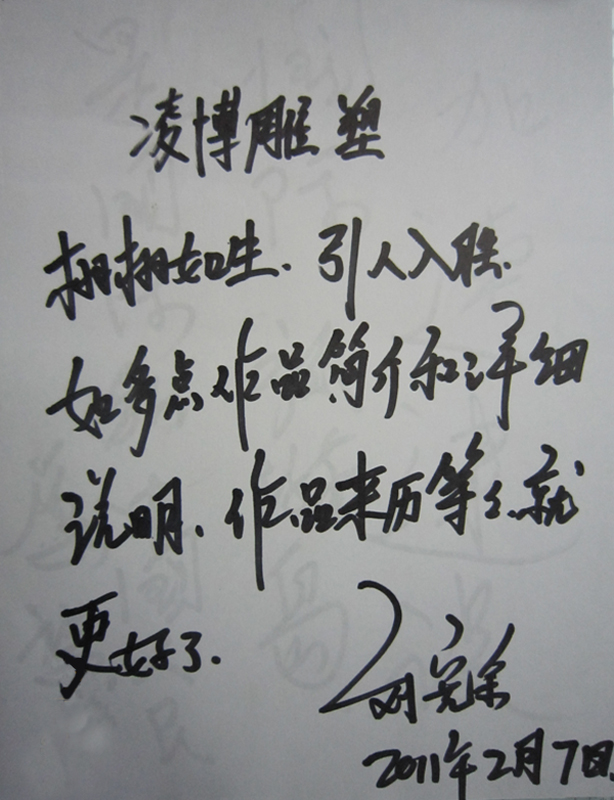 凌博雕塑
栩栩如生. 引人入胜.
如多点作品简介和详细
说明. 作品来历等等就
更好了.
2011年2月7日.